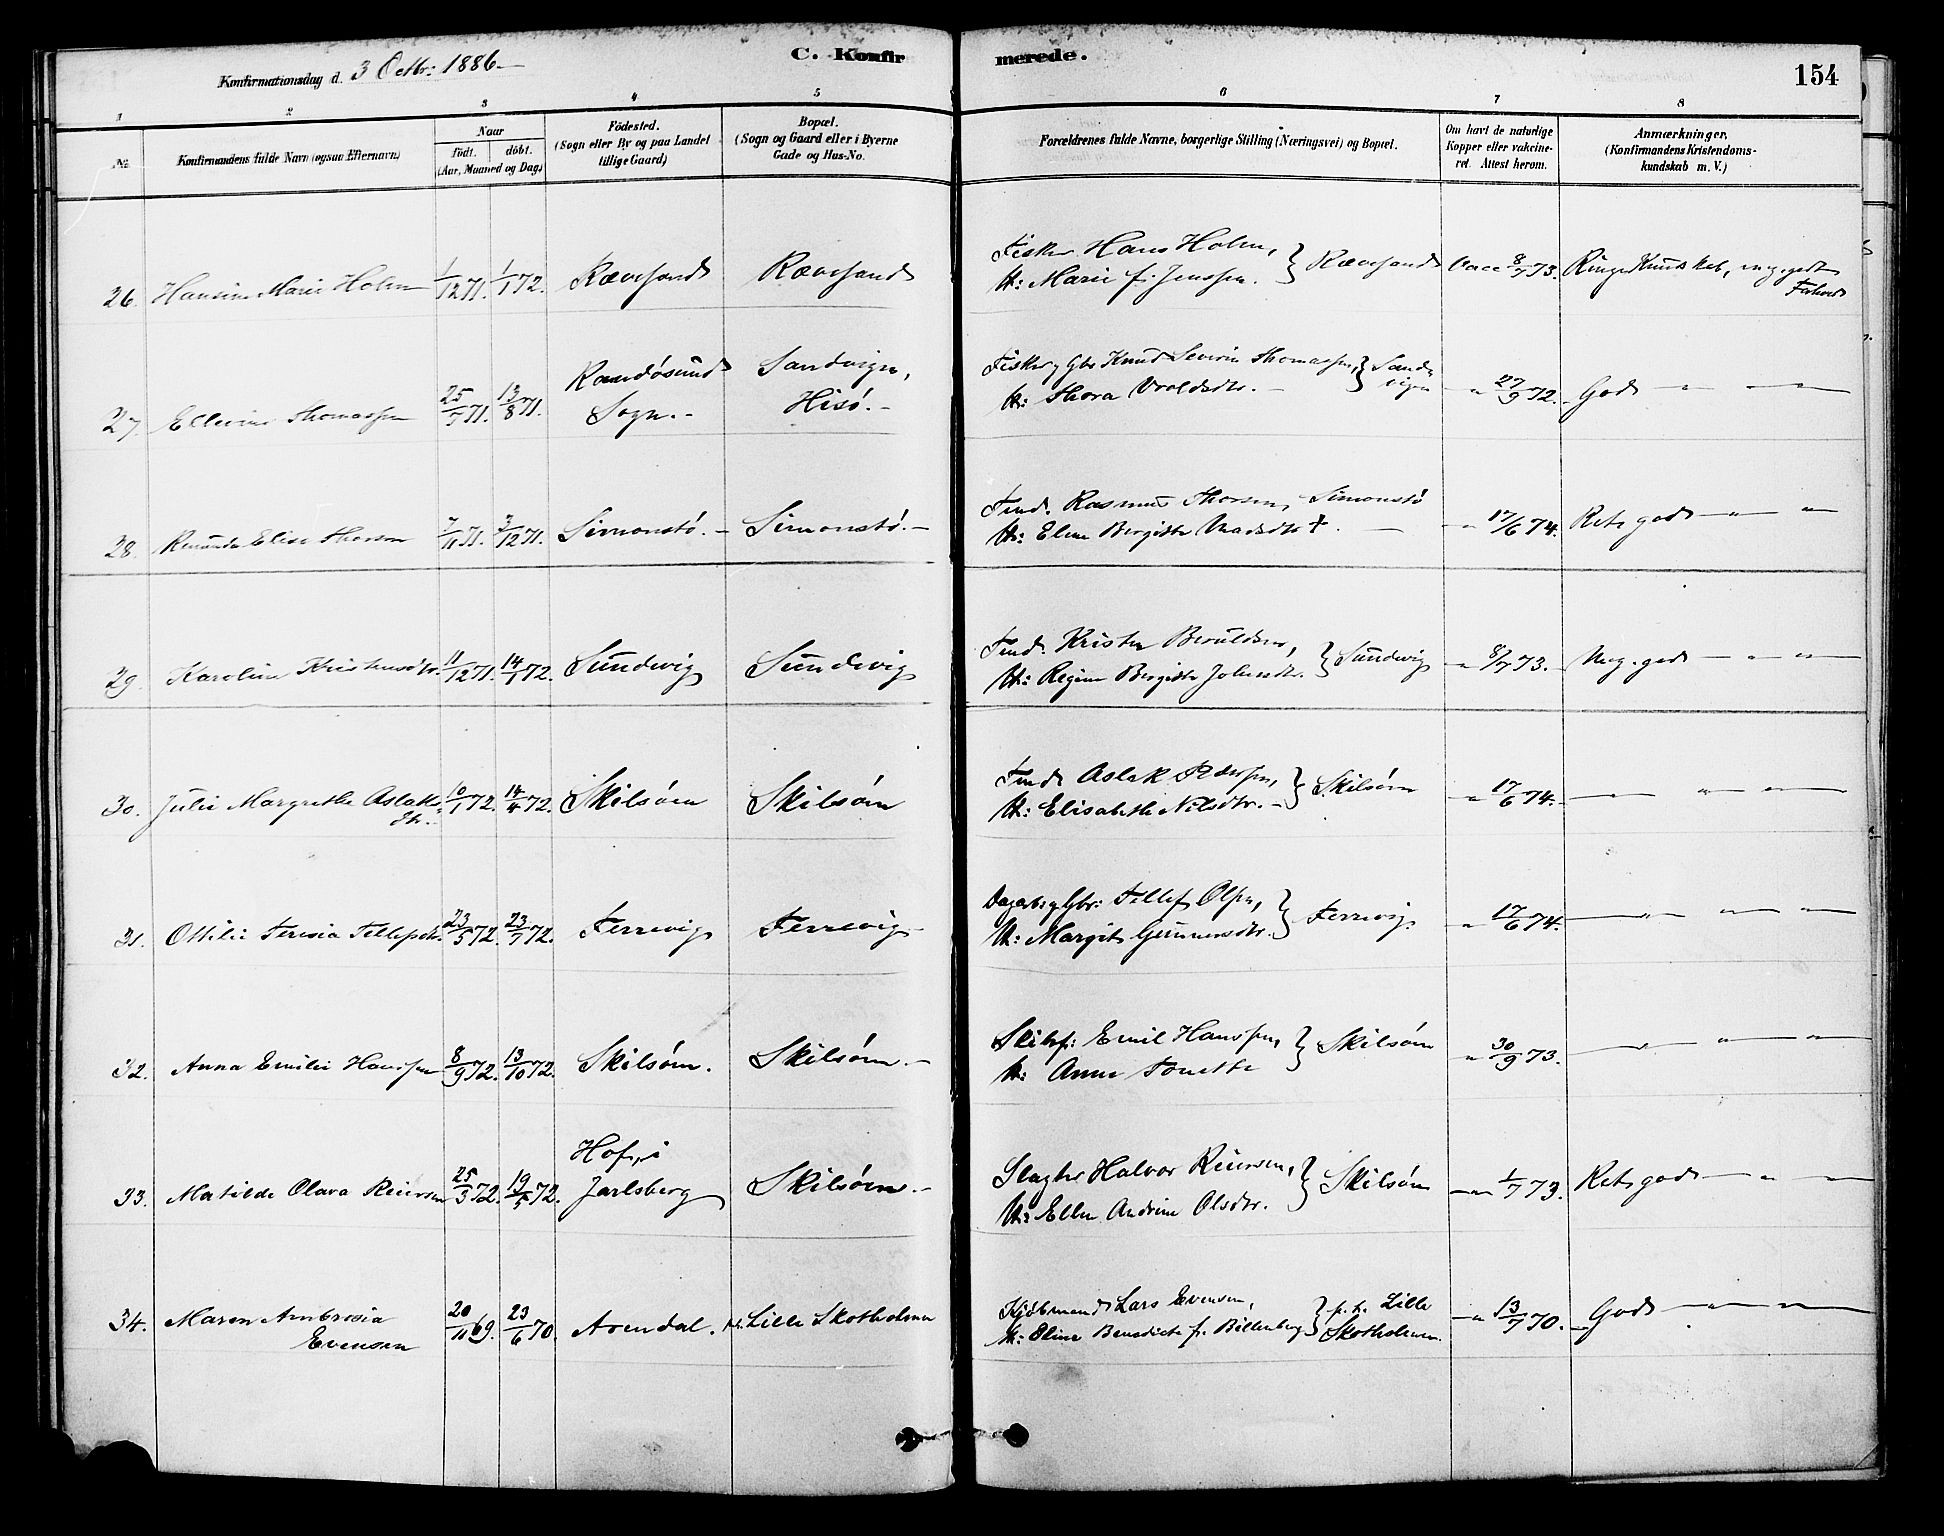 Konfirmationsdag d. 3 Octbr: 1886.-
C. Konfirmerede.
154
1 2 3 4 5 6 7 8
No.
Konfirmandens fulde Navn (ogsaa Efternavn)
Naar
födt. döbt.
(Aar, Maaned og Dag)
Födested.
(Sogn eller By og paa Landet
tillige Gaard)
Bopæl.
(Sogn og Gaard eller i Byerne
Gade og Hus-No.
Forældrenes fulde Navne, borgerlige Stilling (Næringsvei) og Bopæl.
Om havt de naturlige
Kopper eller vakcine-
ret. Attest herom.
Anmærkninger,
(Konfirmandens Kristendoms-
kundskab m. V.)
26. Hansine Marie Holm 1/12 71. 1/1 72. Rævesand Rævesand
Fisker Hans Holm, } Rævesand
H: Marie f. Jenssen.
Vacc 8/7 73. Ringe Kundskab, meg. godt
Forhold
27. Ellevine Thomassen 25/7 71. 13/8 71. Randösund
Sogn.-
Sandvigen,
Hisö.-
Fisker og Gbr Knud Severin Thomassen, } Sand-
vigen
H: Thora Vroldsdtr.-
-"- 27/9 72. God -"- -"-
28. Elise Thorsen 7/11 71. 3/12 71. Simonstö.- Simonstö.-
Tmd. Rasmus Thorsen, Simonstö
H: Eline Birgitte Madsdtr †.
-"- 17/6 74. Rets god -"- -"-
29. Karoline Kristensdtr. 11/12 71. 14/1 72. Sundvig Sundvig
Tmd. Kristen Beruldsen, } Sundvig
H: Regine Birgitte Johnsdtr.
-"- 8/7 73. Meg. god -"- -"-
30. Julie Margrethe Aslaks-
dtr.
10/1 72. 14/4 72. Skilsöm Skilsöm
Tmd. Aslak Pedersen, } Skilsöm
H: Elisabeth Nilsdtr.-
-"- 17/6 74. -"- -"- -"-
31. Ottilie Teresia Tellefsdtr. 23/5 72. 23/7 72. Ferrevig Ferrevig
Dagarb. og Gbr: Tellef Olsen, } Ferrevig.
H: Margit Gunnersdtr.
-"- 17/6 74. -"- -"- -"-
32. Anna Emilie Hanssen 8/9 72. 13/10 72. Skilsöm. Skilsöm.-
Skibsf: Emil Hanssen, } Skilsöm
H: Anne Tonette
-"- 30/9 73. -"- -"- -"-
33. Matilde Olava Reiersen 25/3 72. 19/5 72. Hof, i
Jarlsberg
Skilsöm.-
Slagter Halvor Reiersen, } Skilsöm
H: Ellen Andrine Olsdtr.
-"- 1/7 73. Rets god -"- -"-
34. Maren Ambrosia
Evensen
20/11 69. 23/6 70. Arendal. Lille Skotholmen
Kjöbmand Lars Evensen, } p. t. Lille
H: Eline Benedicte f. Billenberg Skotholmen.
-"- 13/7 70. God -"- -"-